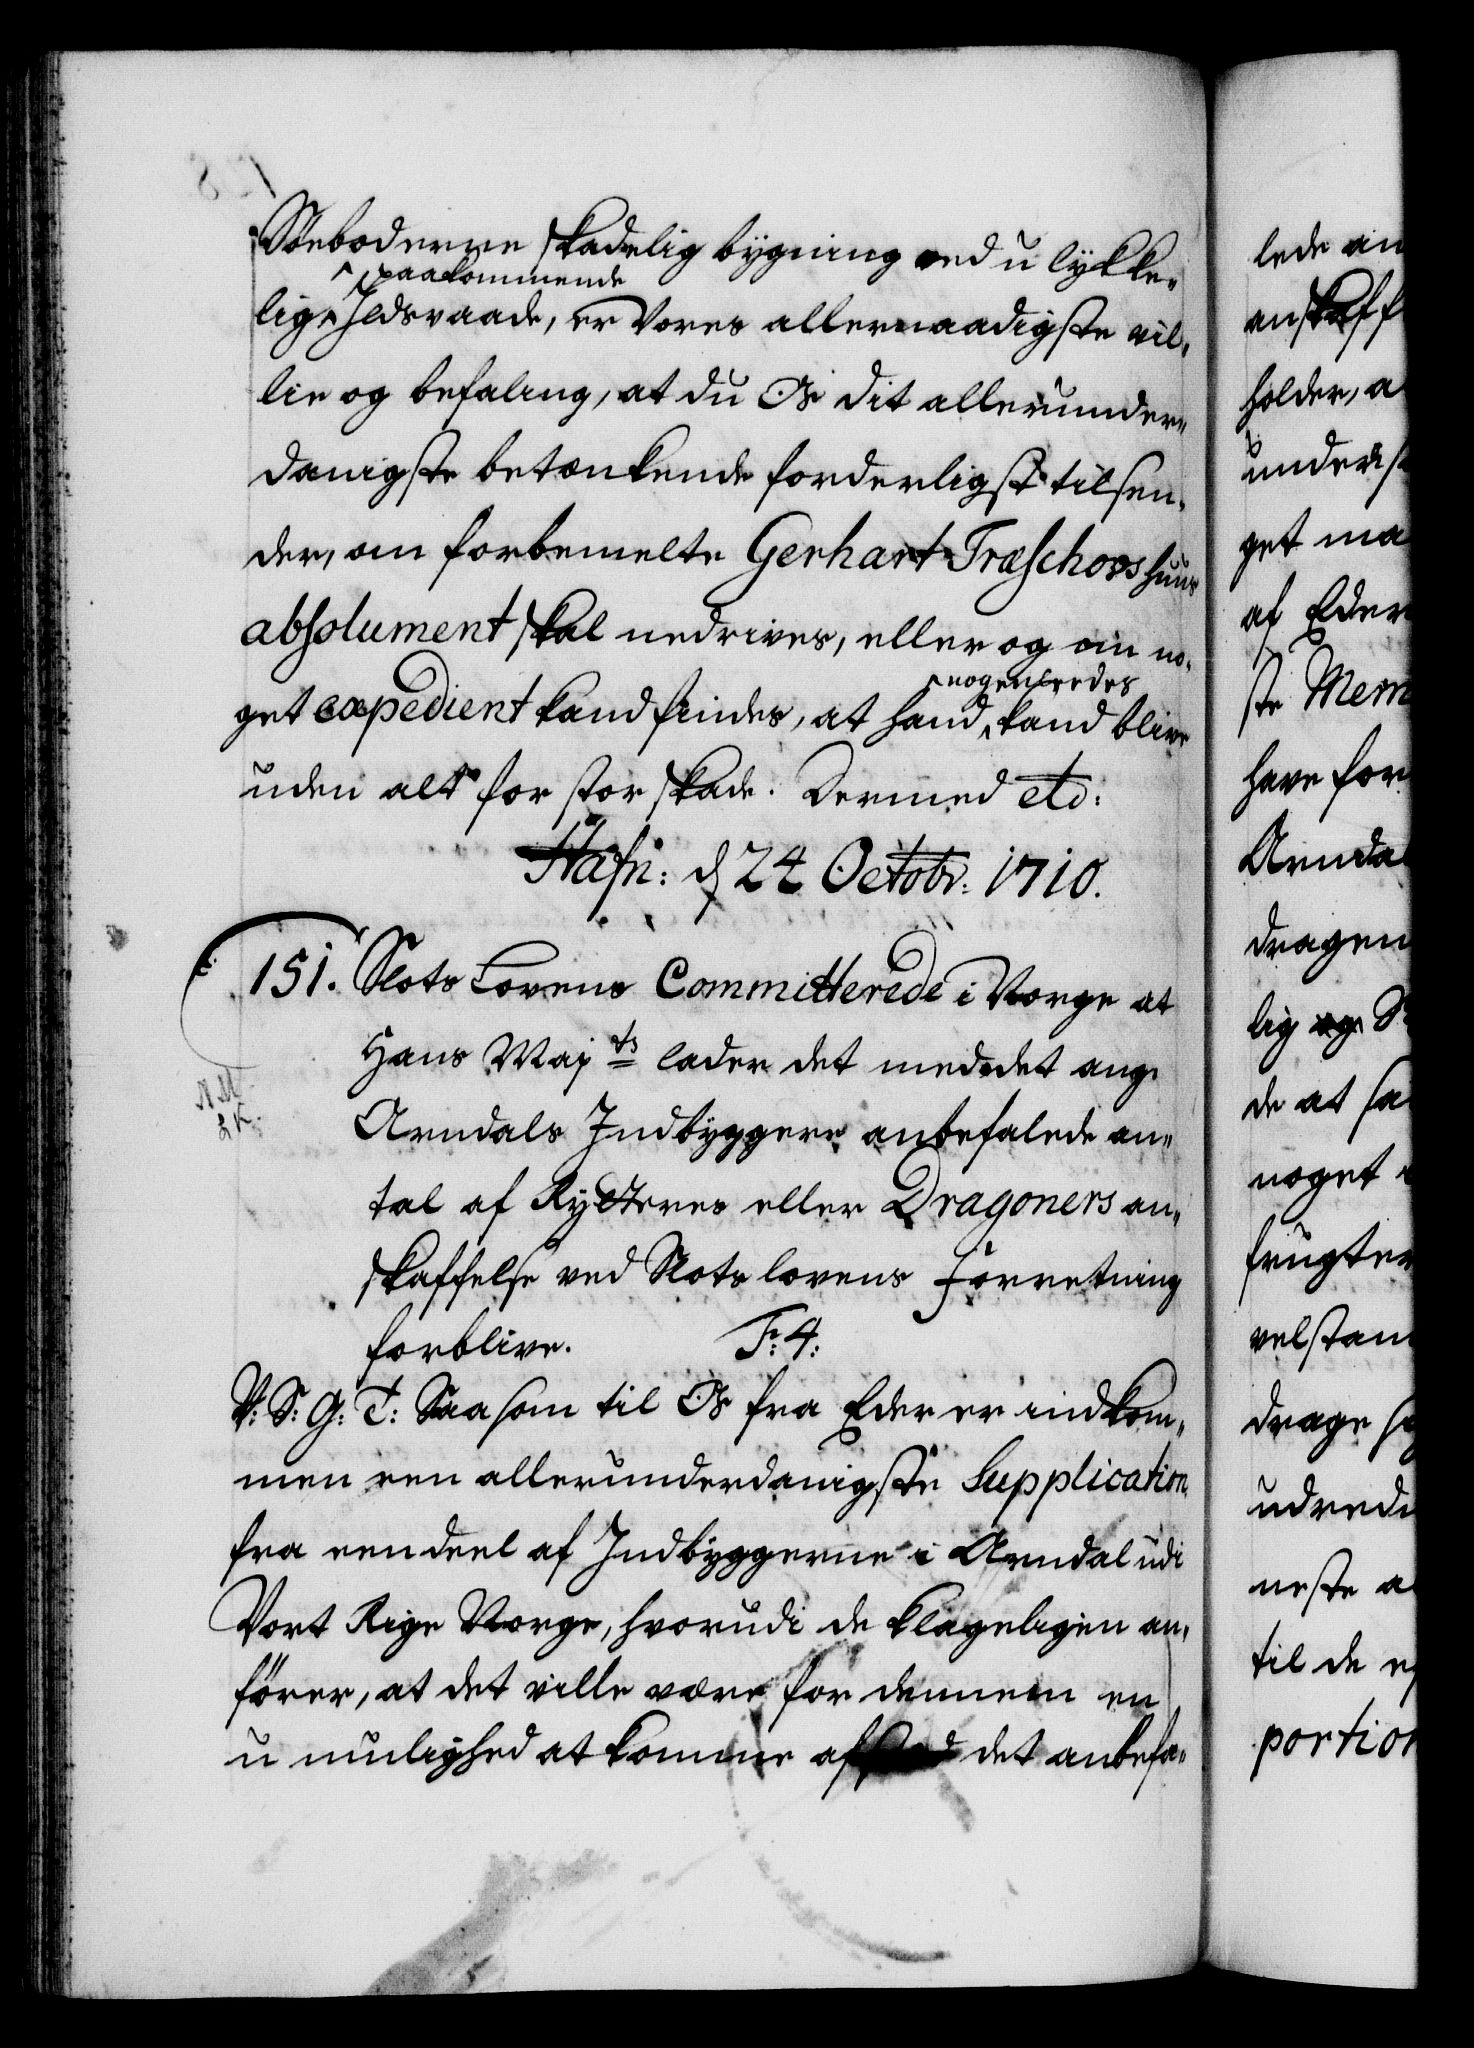 Söeboderne skadelig bygning ved u lykke-
paakommende
lig Ildsvaade, er Vores allernaadigste vil-
lie og befaling, at du Os dit allerunder-
danigste betænkende forderligst tilsen-
der, om forbemelte Gerhart Træschovs huus
absolument skal nedrives, eller og om no-
nogenledes
get expedient kand findes, at hand kand blive
uden alt for stor skade. Dermed etc:
Hafn: d 24 Octobr: 1710.
151. Slots Lovens Committerede i Norge at
Hans Maj ts lader det med det ang:
Arndals Indbyggere anbefalede an-
tal af Rytteres eller Dragoners an-
skaffelse ved Slots lovens Forretning
forblive. F: 4:
V: S: G: T: Saasom til Os fra Eder er indkom-
men een allerunderdanigste Supplication
fra een deel af Indbyggerne i Arndal udi
Vort Rige Norge, hvorudi de klageligen an-
förer, at det ville være for dennem en
u mulighed at komme afsted det anbefa-
N M
L K.
lede an
anskaff
holder, a
underst
get ma
af Eder
ste Mem
have for
Arnda
dragen
lig og S
de at ha
noget
frugter
velstan
drage
udrede
neste a
til de
portion